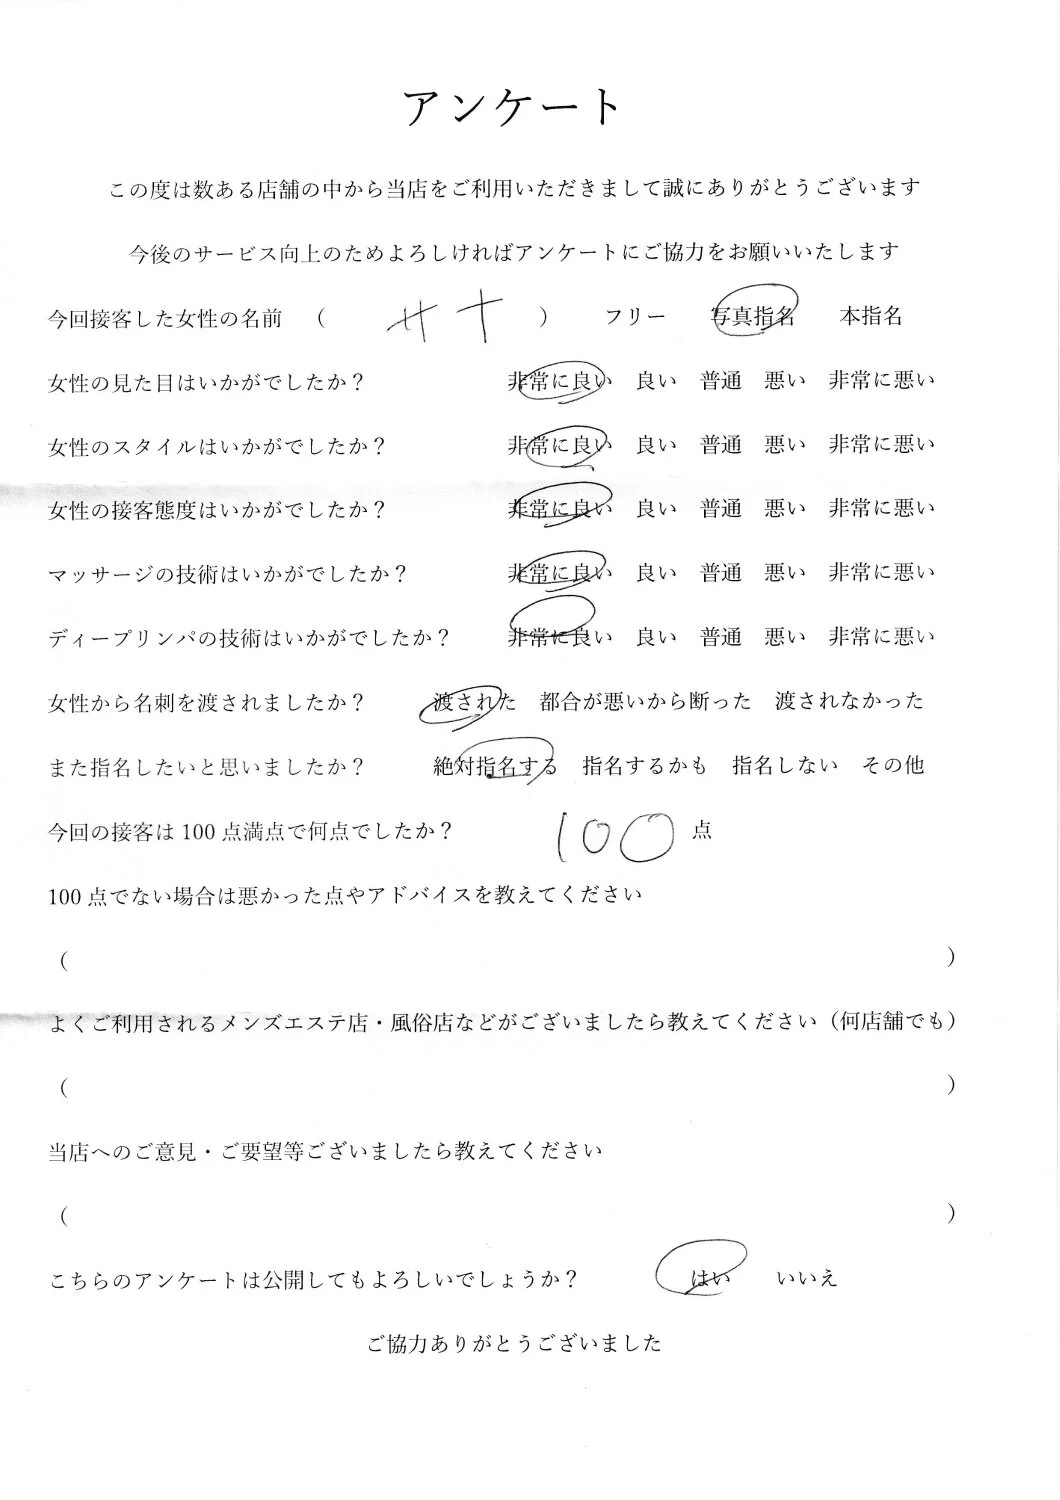 アンケート
この度は数ある店舗の中から当店をご利用いただきまして誠にありがとうございます
今後のサービス向上のためよろしければアンケートにご協力をお願いいたします
今回接客した女性の名前 （ サナ ） フリー 写真指名 本指名
女性の見た目はいかがでしたか？ 非常に良い 良い 普通 悪い 非常に悪い
女性のスタイルはいかがでしたか？ 非常に良い 良い 普通 悪い 非常に悪い
女性の接客態度はいかがでしたか？ 非常に良い 良い 普通 悪い 非常に悪い
マッサージの技術はいかがでしたか？ 非常に良い 良い 普通 悪い 非常に悪い
ディープリンパの技術はいかがでしたか？ 非常に良い 良い 普通 悪い 非常に悪い
女性から名刺を渡されましたか？ 渡された 都合が悪いから断った 渡されなかった
また指名したいと思いましたか？ 絶対指名する 指名するかも 指名しない その他
今回の接客は 100 点満点で何点でしたか？ 100 点
100 点でない場合は悪かった点やアドバイスを教えてください
（ ）
よくご利用されるメンズエステ店・風俗店などがございましたら教えてください（何店舗でも）
（ ）
当店へのご意見・ご要望等ございましたら教えてください
（ ）
こちらのアンケートは公開してもよろしいでしょうか？ はい いいえ
ご協力ありがとうございました